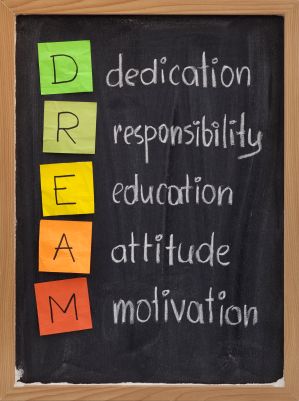 D dedication
R responsibility
E education
A attitude
M motivation